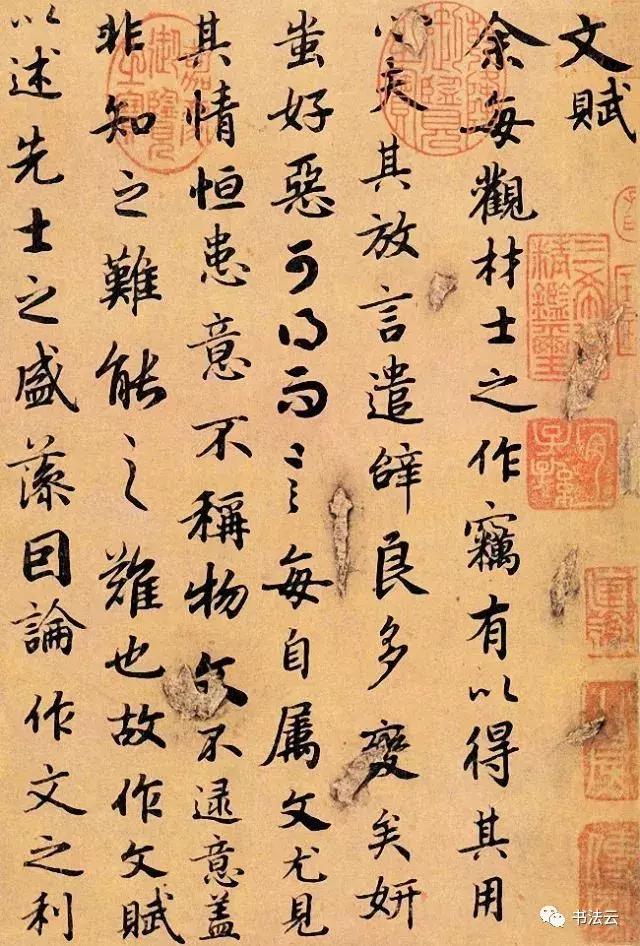 文賦
余每觀材士之作竊有以得其用
心夫其放言遣辭良多變矣妍
蚩好惡可得而言每自属文尤見
其情恒患意不稱物文不逮意盖
非知之難能之難也故作文賦
以述先士之盛藻因論作文之利
嘉慶御覽之寶
三希堂精鑑璽
宜子孫
书法云